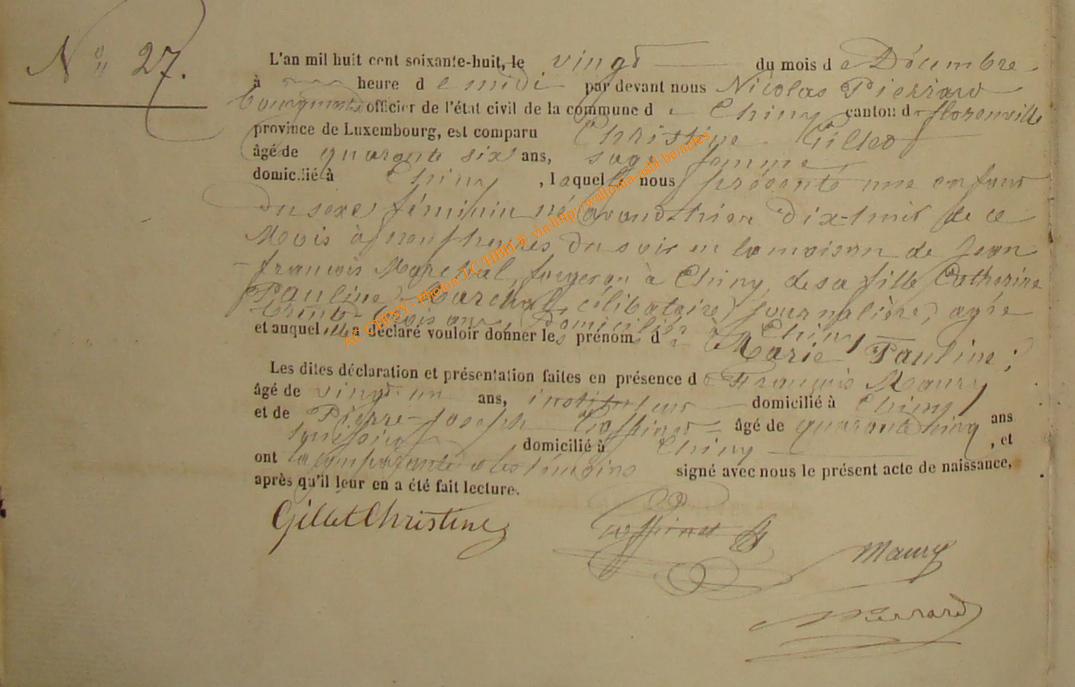 N° 27.
L'an mil huit cent soixante-huit, le vingt du mois de Décembre
à heure de midi par devant nous Nicolas Pierrard
bourgmestre officier de l'état civil de la commune de Chiny canton de florenville
province de Luxembourg, est comparu Christine Gillet
âgé de quarante six ans, sage femme
domicilié à Chiny, laquelle nous présenté une enfant
du sexe féminin né avant-hier dix-huit de ce
Mois à neuf heures du soir en la maison de Jean
françois Marchal, forgeron à Chiny, de sa fille Catherine
Pauline Marchal célibataire, journalière, agée
trente-trois ans, domiciliée à Chiny
et auquel elle a déclaré vouloir donner les prénom de Marie Pauline;
Les dites déclaration et présentation faites en présence de François Maury
âgé de vingt un ans, instituteur domicilié à Chiny
et de Pierre-Joseph âgé de quarante cinq ans
domicilié à Chiny, et
ont la comparante et les témoins signé avec nous le présent acte de naissance,
après qu'il leur en a été fait lecture.
Gillet Christine
Maury
Pierrard